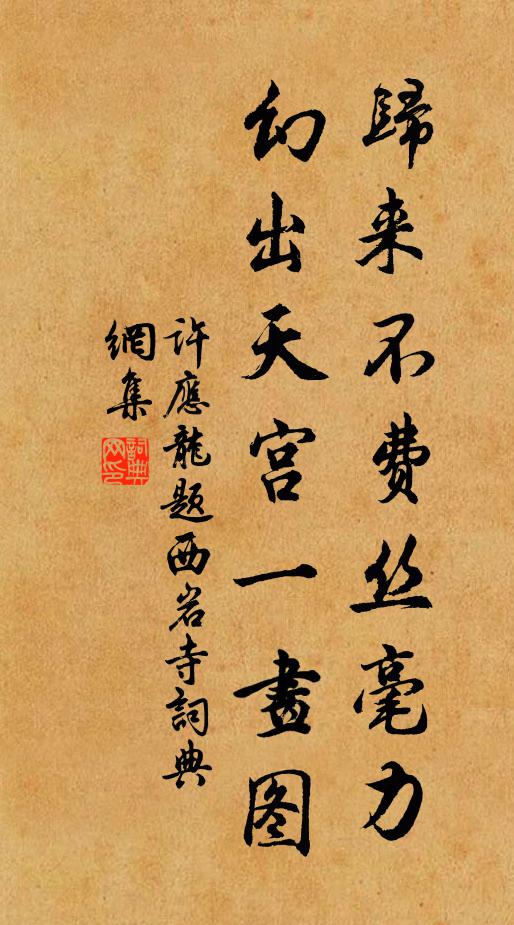 歸来不费丝毫力
幻出天宫一畫图
許應龍题西岩寺詞典
網集
詞典网印